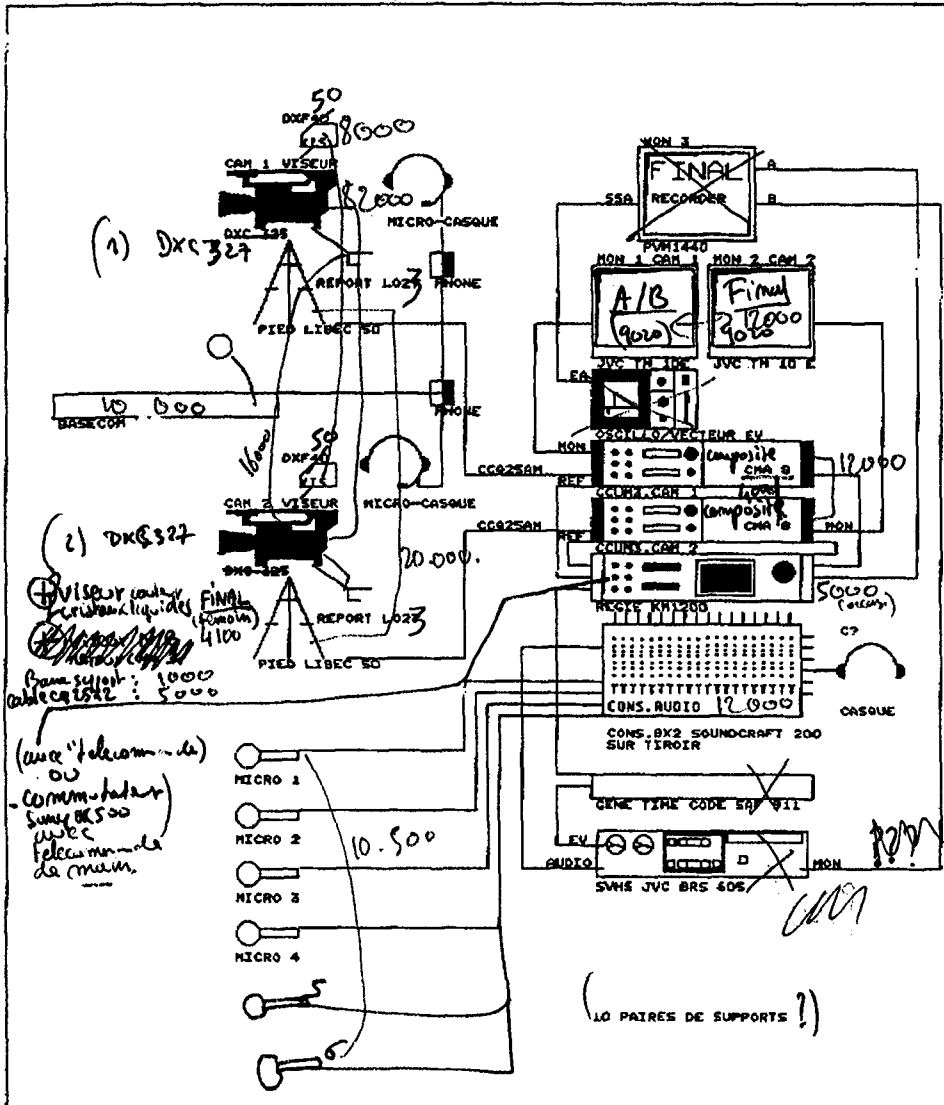 50
DXF40
VIS
8000
CAM 1 VISEUR
82000
MICRO-CASQUE
(1) DXC 327
DXC-325
REPORT LO27 3
PHONE
PIED LIBEC 50
10 000
BASECOM
PHONE
16000
50
DXF40
VIS
MICRO-CASQUE
CAM 2 VISEUR
2) DXC 327
20.000.
+ Viseur couleur
cristaux liquides
FINAL
(témoin)
4100
REPORT LO27 3
PIED LIBEC 50
Barre support : 1000
5000
(avec "télécommande)
ou
- commutateur
Sony
avec
télécommande
de main.
MICRO 1
MICRO 2
10.500
MICRO 3
MICRO 4
5
6
MON 3
FINAL
RECORDER
SSA
A
B
PVM1440
MON 1 CAM 1
MON 2 CAM 2
A/B
(9020)
Final
12000
9020
JVC TM 10E
JVC TM 10 E
EA
OSCILLO/VECTEUR EV
MON
composite
CMA 8
12000
CCQ25AM
REF
CCUM3.CAM 1
composite
CMA 8
CCQ25AM
REF
MON
CCUM3.CAM 2
REGIE KM1200
5000
C?
CONS.AUDIO 12000
CASQUE
CONS.8X2 SOUNDCRAFT 200
SUR TIROIR
GENE TIME CODE SAV 911
EV
AUDIO
MON
SVHS JVC BRS 605
(10 PAIRES DE SUPPORTS ?)